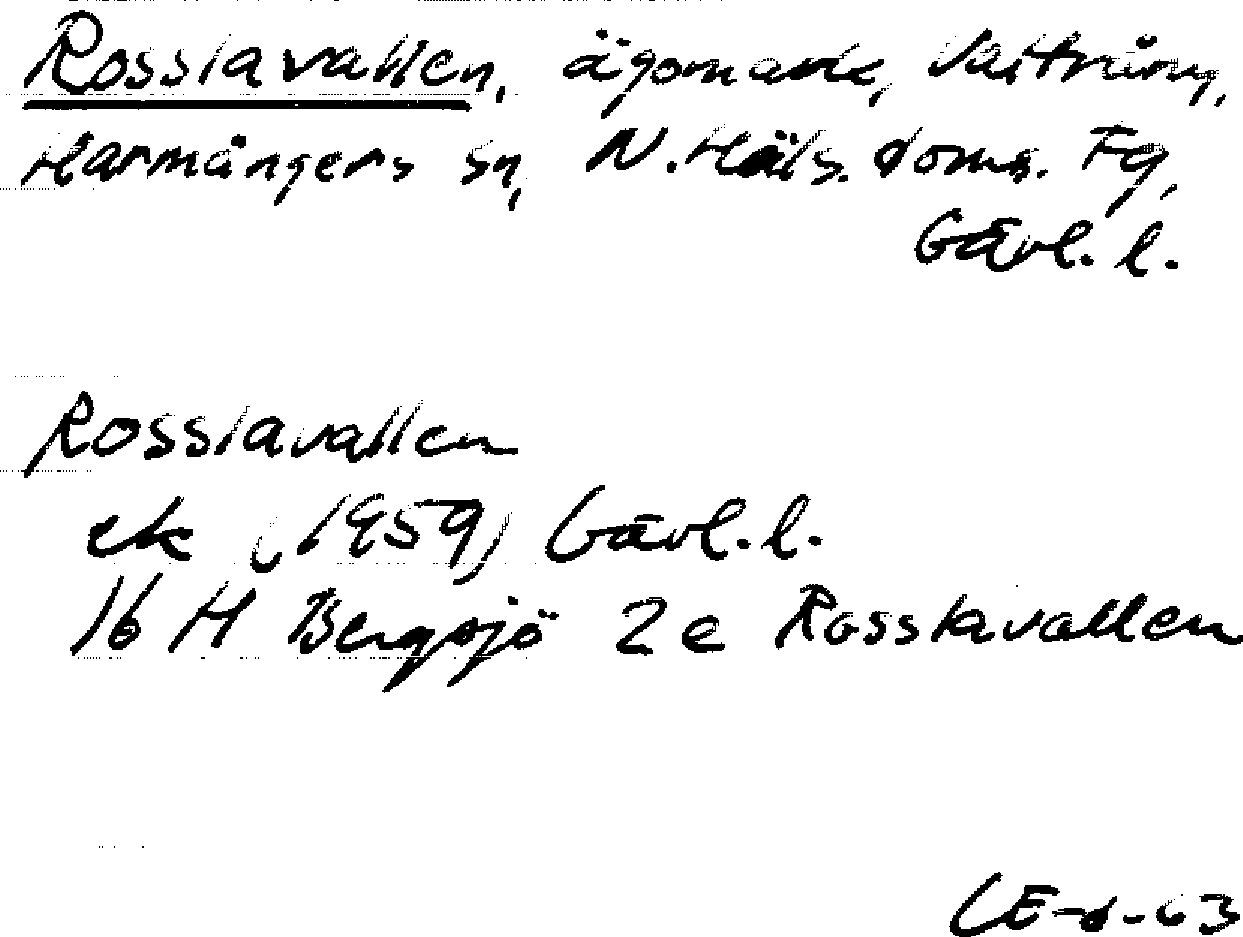 Rosslavallen, ägomark, Vattrång,
Harmångers sn, N. Häls. doms. Fg,
Gävl. l.
Rosslavallen
ek (1959) Gävl. l.
16 H Bergsjö 2e Rosslavallen